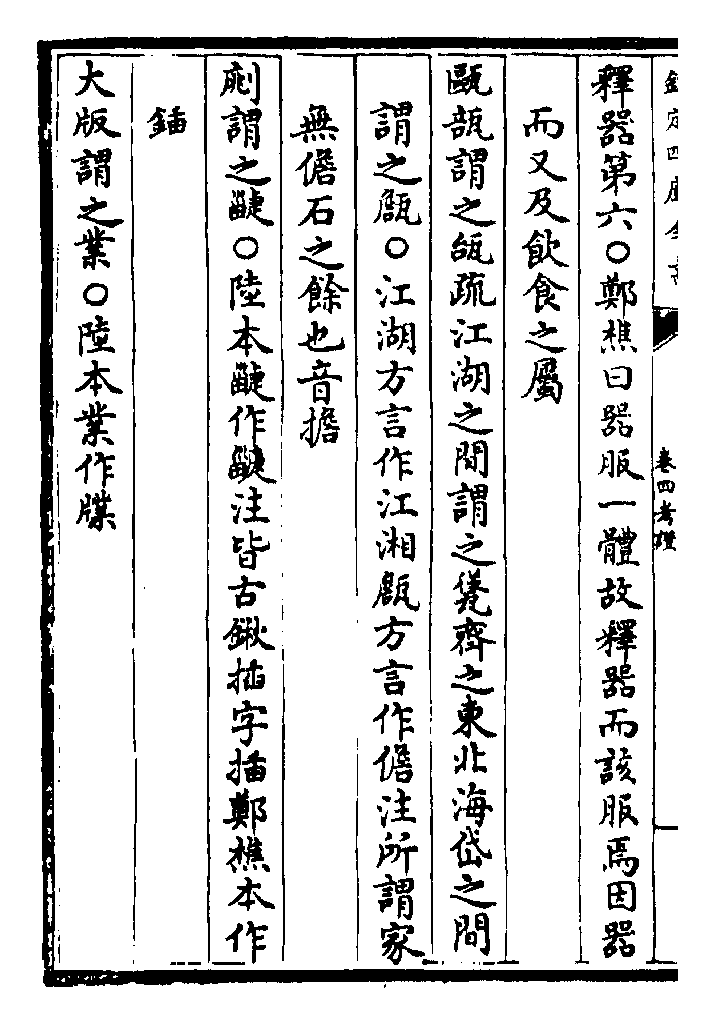 欽定四庫全書
卷四考證
釋器第六○鄭樵曰器服一體故釋器而該服焉因器
而又及飲食之屬
甌瓿謂之瓵疏江湖之間謂之㼽齊之東北海岱之間
謂之㽃○江湖方言作江湘㽃方言作儋注所謂家
無儋石之餘也音擔
斪謂之疀○陸本疀作𤲿注皆古鍬插字插鄭樵本作
鍤
大版謂之業○陸本業作牒